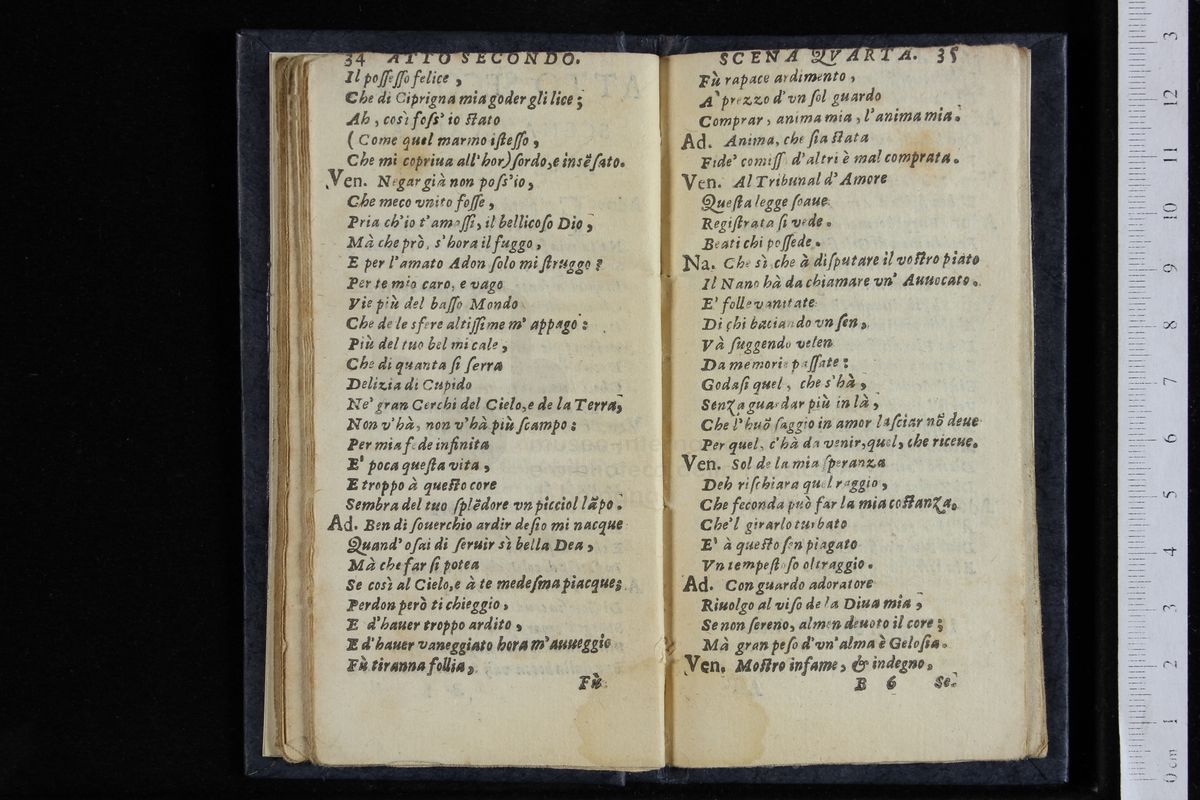 34 ATTO SECONDO.
Il posſeſſo felice,
Che di Ciprigna mia goder gli lice;
Ah, così foſs' io ſtato
(Come quel marmo iſteſſo,
Che mi copriua all'hor) ſordo, e insẽſato.
Ven. Negar già non poſs'io,
Che meco vnito foſſe,
Pria ch'io t'amaſſi, il bellicoſo Dio,
Mà che prò, s'hora il fuggo,
E per l'amato Adon ſolo mi ſtruggo?
Per te mio caro, e vago
Vie più del baſſo Mondo
Che de le sfere altiſſime m' appago:
Più del tuo bel mi cale,
Che di quanta ſi ſerra
Delizia di Cupido
Ne' gran Cerchi del Cielo, e de la Terra,
Non v'hà, non v'hà più ſcampo:
Per mia fede infinita
E' poca queſta vita,
E troppo à queſto core
Sembra del tuo ſplẽdore vn picciol lãpo.
Ad. Ben di ſouerchio ardir deſio mi nacque
Quand' oſai di ſeruir sì bella Dea,
Mà che far ſi potea
Se così al Cielo, e à te medeſma piacque;
Perdon però ti chieggio,
E d'hauer troppo ardito,
E d'hauer vaneggiato hora m'auueggio
Fù tiranna follia,
Fù
SCENA QVARTA. 35
Fù rapace ardimento,
A' prezzo d'vn ſol guardo
Comprar, anima mia, l'anima mia.
Ad. Anima, che ſia ſtata
Fide' comiſſ. d'altri è mal comprata.
Ven. Al Tribunal d'Amore
Queſta legge ſoaue
Regiſtrata ſi vede.
Beati chi poſſede.
Na. Che sì, che à diſputare il voſtro piato
Il Nano hà da chiamare vn' Auuocato.
E' folle vanitate
Di chi baciando vn ſen,
Và ſuggendo velen
Da memorie paſſate:
Godaſi quel, che s'hà,
Senza guardar più in là,
Che l'huõ ſaggio in amor laſciar nõ deue
Per quel, c'hà da venir, quel, che riceue.
Ven. Sol de la mia ſperanza
Deh riſchiara quel raggio,
Che feconda può far la mia coſtanza.
Che'l girarlo turbato
E' à queſto ſen piagato
Vn tempeſtoſo oltraggio.
Ad. Con guardo adoratore
Riuolgo al viſo de la Diua mia,
Se non ſereno, almen deuoto il core;
Mà gran peſo d'vn'alma è Geloſia.
Ven. Moſtro infame, & indegno,
B 6 Se
0 cm 1 2 3 4 5 6 7 8 9 10 11 12 3